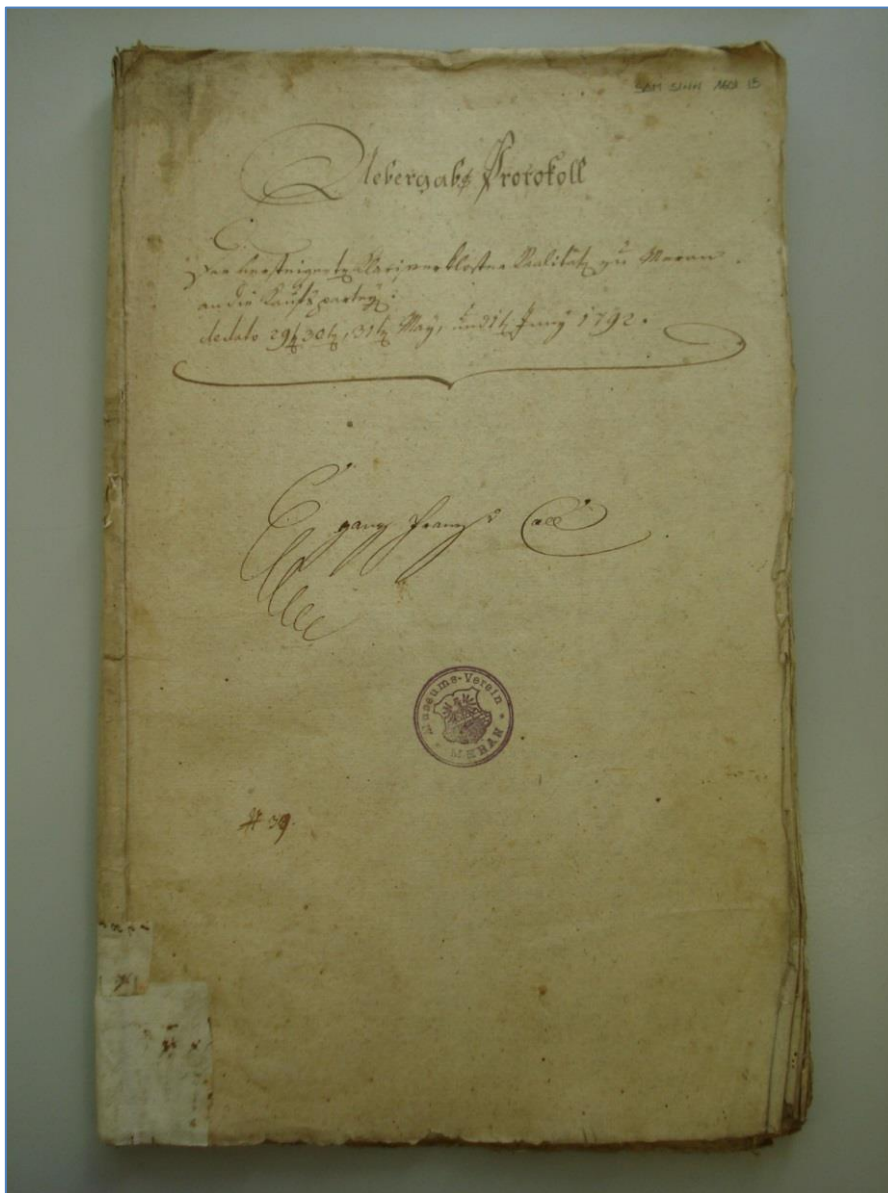 Uebergabs Protokoll
Der versteigerten Clarisserkloster Realitäten zu Meran
an die Kaufsparteyen
de dato 29t 30t, 31t May, und 1t Juny 1792.
Franz
Museums-Verein
MERAN
# 39.